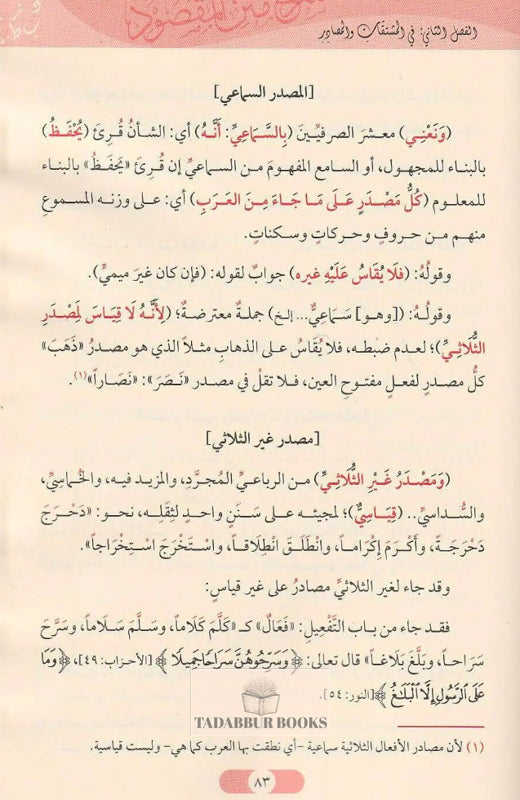 شرح متن المقصود
الفصل الثاني: في المشتقات والمصادر
[المصدر السماعي]
(وَنَعْنِي) معشرَ الصرفيِّينَ (بِالسَّمَاعِيِّ: أَنَّهُ) أي: الشأنُ قُرِئَ (يُحْفَظُ)
بالبناء للمجهول، أو السامع المفهومَ من السماعيِّ إن قُرِئَ «يَحفَظُ» بالبناء
للمعلوم (كُلُّ مَصْدَرٍ عَلَى مَا جَاءَ مِنَ العَرَبِ) أي: على وزنه المسموعِ
منهم من حروفٍ وحركاتٍ وسكناتٍ.
وقولُهُ: (فلَا يُقَاسُ عَلَيْهِ غيره) جوابٌ لقوله: (فإن كان غيرَ ميميٍّ).
وقولُهُ: ([وهو] سَمَاعِيٌّ... إلخ) جملةٌ معترضةٌ؛ (لِأَنَّهُ لَا قِيَاسَ لِمَصْدَرِ
الثُّلَاثِيِّ)؛ لعدم ضبطه، فلا يقَاسُ على الذهابِ مثلاً الذي هو مصدرُ «ذَهَبَ»
كلُّ مصدرٍ لفعلٍ مفتوحِ العين، فلا تقلْ في مصدر «نَصَرَ»: «نَصَاراً»(١).
[مصدر غير الثلاثي]
(وَمَصْدَرُ غَيْرِ الثُّلَاثِيِّ) من الرباعيِّ المُجرَّدِ، والمزيد فيه، والخُماسِيِّ،
والسُّداسيِّ.. (قِيَاسِيٌّ)؛ لمجيئه على سَنَنٍ واحدٍ لثقَلِهِ، نحو: «دَحْرَجَ
دَحْرَجَةً، وأَكْرَمَ إِكْرَاماً، وانْطَلَقَ انْطِلَاقاً، واسْتَخْرَجَ اسْتِخْرَاجاً».
وقد جاء لغير الثلاثيِّ مصادرُ على غير قياسٍ:
فقد جاء من باب التَّفْعِيلِ: «فَعَالٌ» كـ «كَلَّمَ كَلَاماً، وسَلَّمَ سَلَاماً، وسَرَّحَ
سَرَاحاً، وبَلَّغَ بَلَاغاً» قال تعالى: ﴿وَسَرِّحُوهُنَّ سَرَاحًا جَمِيلًا﴾ [الأحزاب: ٤٩]، ﴿وَمَا
عَلَى ٱلرَّسُولِ إِلَّا ٱلْبَلَٰغُ﴾ [النور: ٥٤].
TADABBUR BOOKS
(١) لأن مصادر الأفعال الثلاثية سماعية -أي نطقت بها العرب كما هي- وليست قياسية.
٨٣